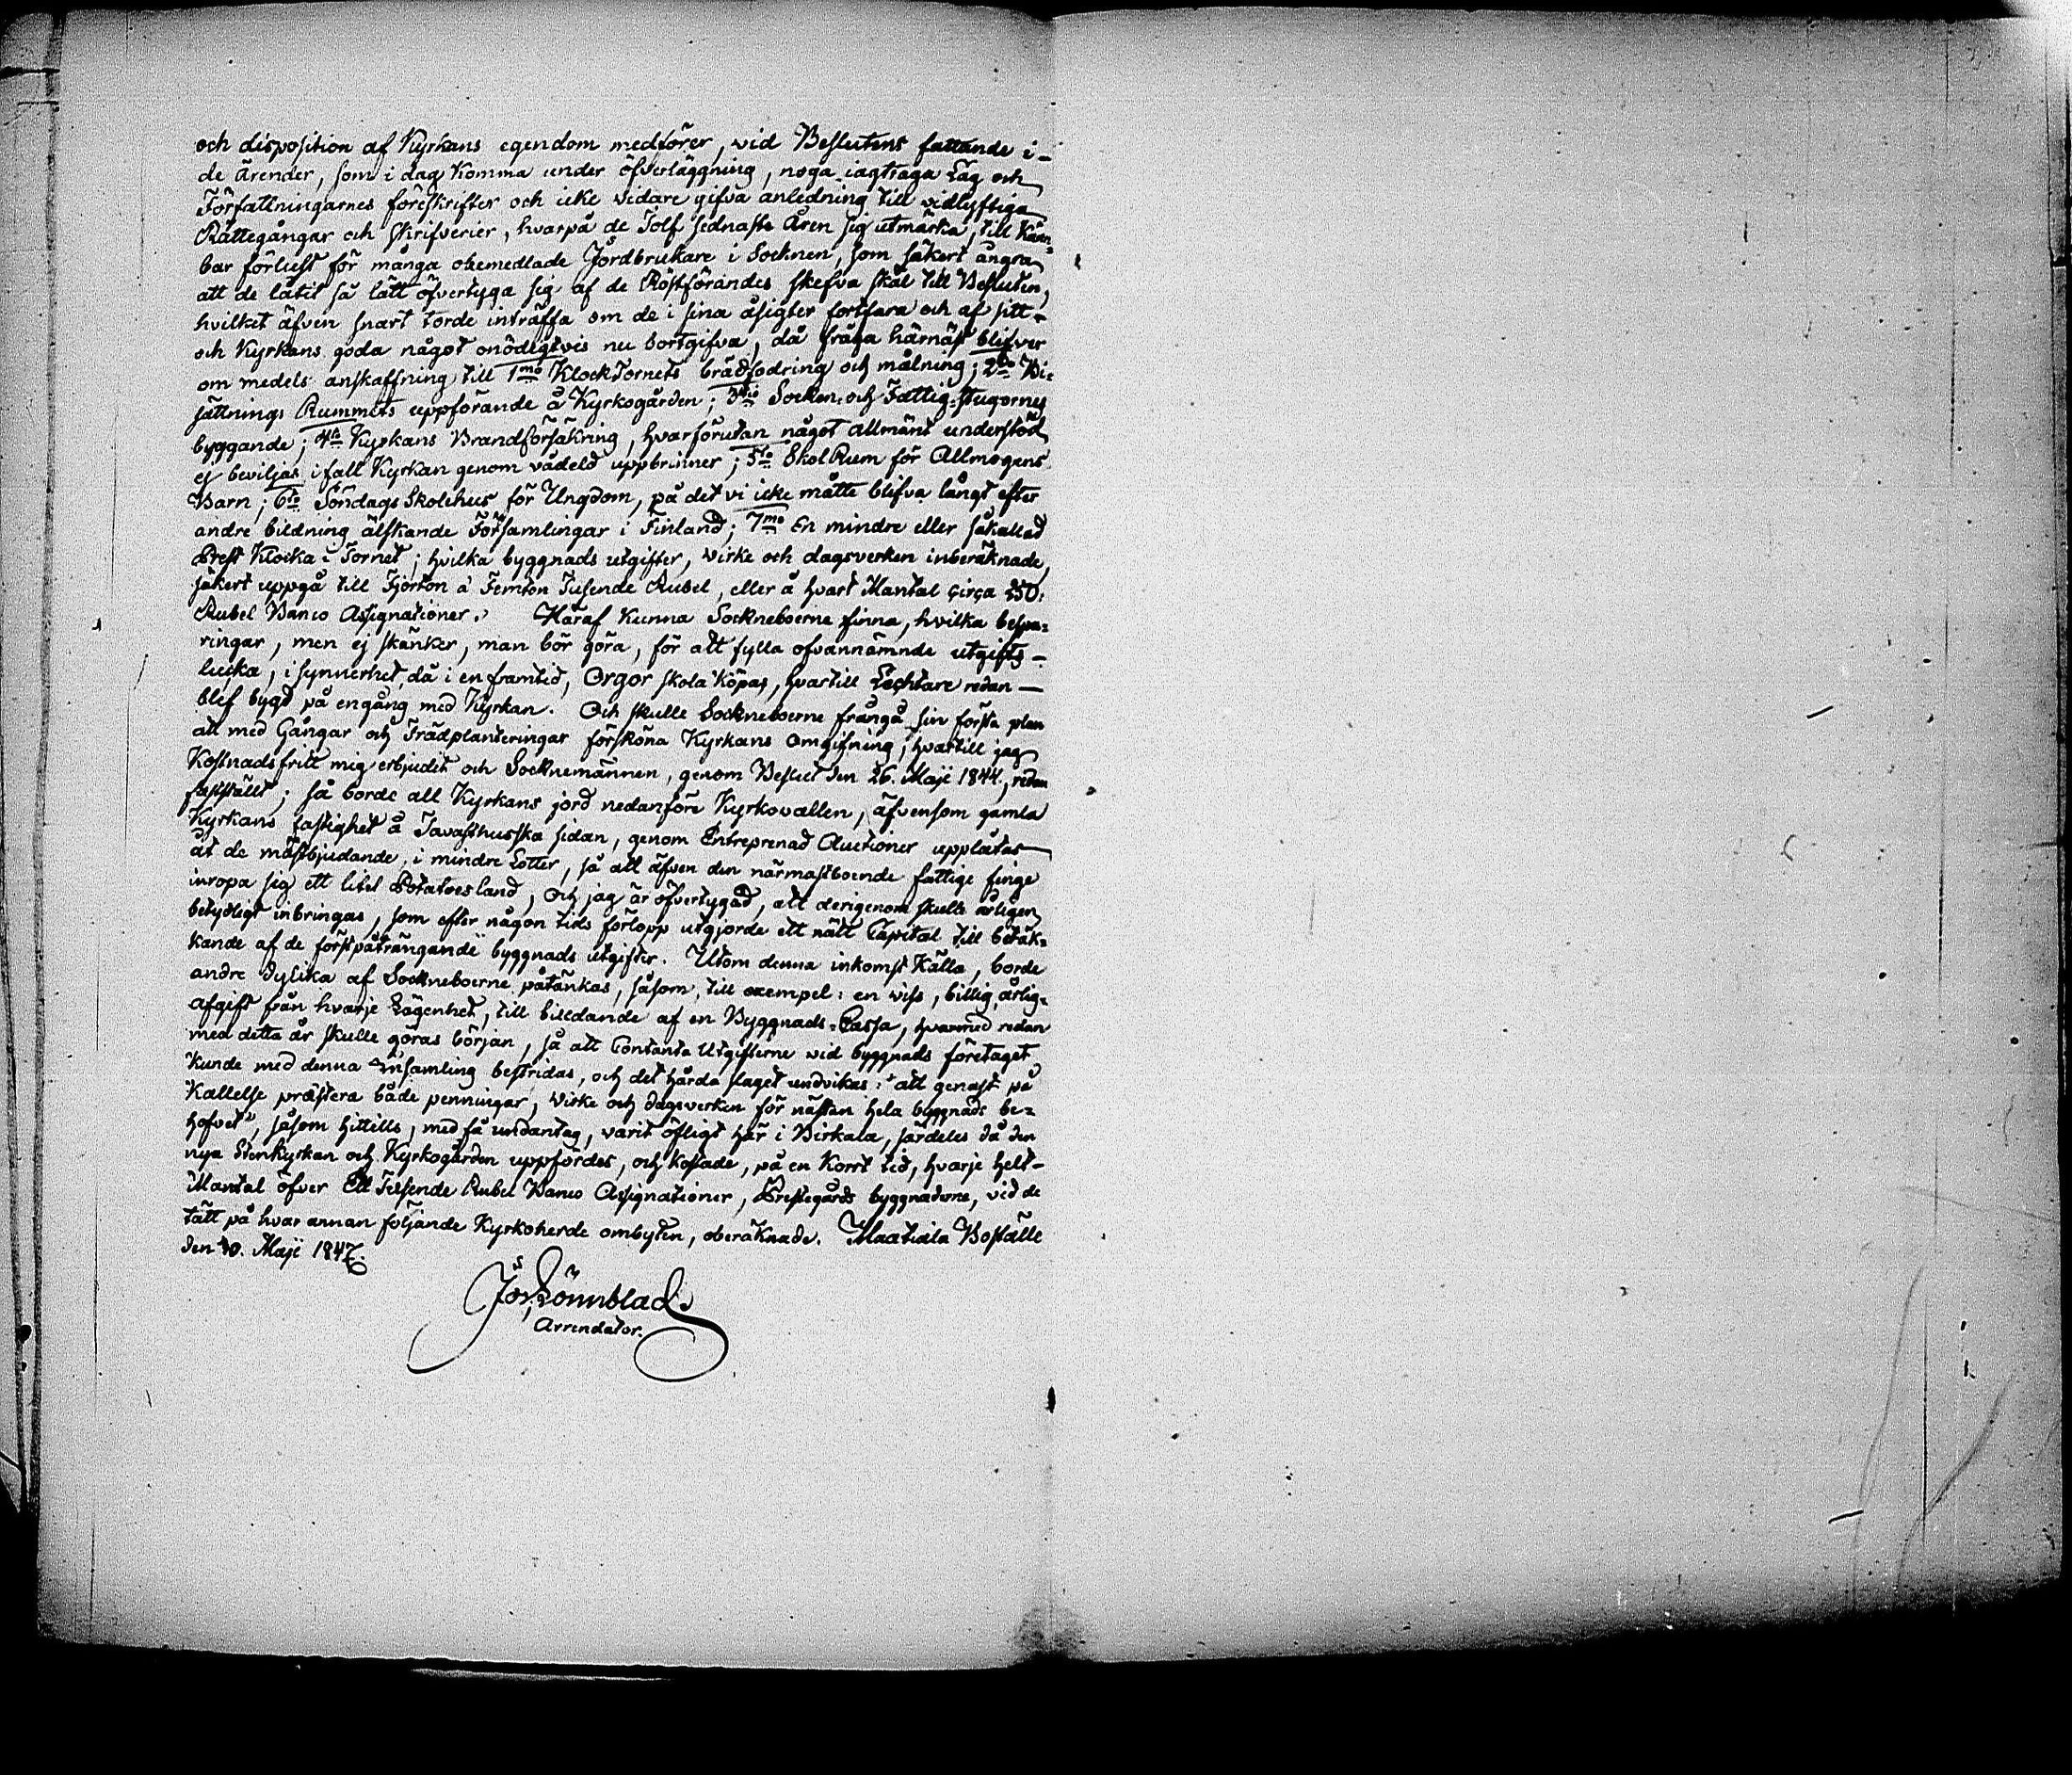 och disposition af Kyrkans egendom medförer, vid Beslutens fattande i
de Ärender, som i dag komma under öfverläggning, noga iagttaga Lag och
Författningarnes föreskrifter och icke vidare gifva anledning till vidlyftiga
Rättegångar och skrifverier, hvarpå de Tolf sednaste Åren sig utmärka, till känn=
bar förlust för många obemedlade Jordbrukare i Socknen, som säkert ångra
att de låtit så lätt öfvertyga sig af de Röstförandes skefva skäl till Besluten,
hvilket äfven snart torde inträffa om de i sina åsigter fortfara och af sitt
och Kyrkans goda något onödigtvis nu bortgifva, då fråga härnäst blifver
om medels anskaffning till 1mo KlockTornets brädfodring och målning; 2do Bi=
sättnings Rummets uppförande å Kyrkogården; 3tio Socken= och Fattig=stugornes
byggande; 4to Kyrkans Brandförsäkring, hvarförutan något allmänt understöd
ej beviljas ifall Kyrkan genom vådeld uppbrinner; 5to Skol Rum för Allmogens
Barn; 6to Söndags Skolehus för Ungdom, på det vi icke måtte blifva långt efter
andre bildning älskande Församlingar i Finland; 7mo En mindre eller såkallad
Prest Klocka i Tornet; hvilka byggnads utgifter, virke och dagsverken inberäknade,
säkert uppgå till Fjorton à Femton Tusende Rubel, eller å hvart Mantal circa 250:
Rubel Banco Assignationer. Häraf kunna Sockneboerne finna, hvilka bespa=
ringar, men ej skänker, man bör göra, för att fylla ofvannämnde utgifts=
lucka, i synnerhet, då i en framtid, Orgor skola köpas, hvartill Lechtare redan
blef bygd på engång med Kyrkan. Och skulle Sockneboerne frångå sin första plan
att med Gångar och Trädplanteringar försköna Kyrkans Omgifning, hvartill jag
Kostnadsfritt mig erbjudit och Socknemännen, genom Beslut den 26. Maji 1844, redan
fastställt; så borde all Kyrkans jord nedanföre Kyrkovallen, äfvensom gamla
Kyrkans fastighet å Tavasthusska sidan, genom Entreprenad Auctioner upplåtas
åt de mästbjudande, i mindre Lotter, så att äfven den närmastboende fattige finge
inropa sig ett litet Potatoesland, Och jag är öfvertygad, att derigenom skulle årligen
betydligt inbringas, som efter någon tids förlopp utgjorde ett nätt Capital till betäk=
kande af de förstpåträngande byggnads utgifter. Utom denna inkomst Källa, borde
andre dylika af Sockneboerne påtänkas, såsom, till exempel: en viss, billig, årlig=
afgift från hvarje Lägenhet, till bildande af en Byggnads=Cassa, hvarmed redan
med detta år skulle göras början, så att Contanta Utgifterne vid byggnads företaget
kunde med denna Insamling bestridas, och det hårda slaget undvikas: "att genast på
Kallelse præstera både penningar, Virke och dagsverken för nästan hela byggnads be=
hofvet", såsom hittills, med få undantag, varit öfligt här i Birkala, särdeles då den
nya Stenkyrkan och Kyrkogården uppfördes, och kostade, på en kort tid, hvarje helt=
Mantal öfver Ett Tusende Rubel Banco Assignationer, Prestegårds byggnaderne, vid de
tätt på hvar annan följande Kyrkoherde ombyten, oberäknade. Maatiala Boställe
den 10. Maji 1847.
Lönnblad.
Arrendator.